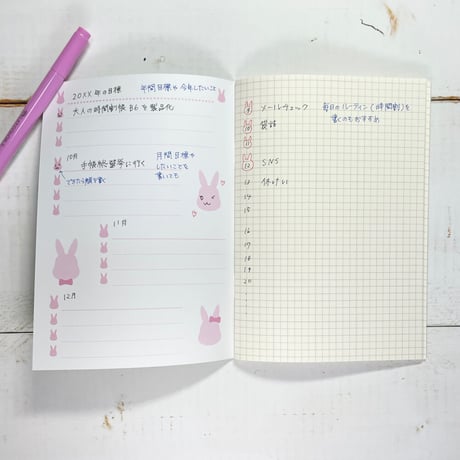 20XX年の目標
年間目標や今年したいこと
大人の時間割帳 B6を製品化
10月
手帳総選挙に行く
月間目標や
したいことを
書いても
できたら顔を書く
11月
12月
9 メールチェック
毎日のルーティン(時間割)を
書くのもおすすめ
10 袋詰
11
12 SNS
13 休けい
14
15
16
17
18
19
20